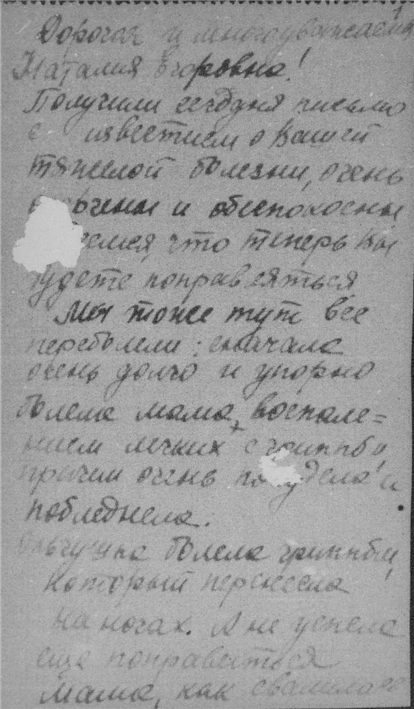 Дорогая и многоуважаемая
Наталия Егоровна!
Получили сегодня письмо
с известием о Вашей
тяжелой болезни, очень
огорчены и обеспокоены
что теперь Вы
будете поправляться
Мы тоже тут все
переболели: сначала
очень долго и упорно
болела мама, воспале=
нием легких с гриппом
причем очень похудела и
побледнела.
болела гриппом,
который перенесла
на ногах. А не успела
еще поправиться
мама, как свалилась